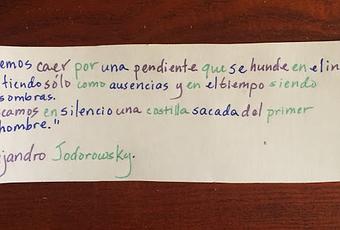 emos caer por una pendiente que se hunde en el in
tiendo sólo como ausencias y en el tiempo siendo
sombras.
camos en silencio una costilla sacada del primer
hombre."
jandro Jodorowsky.